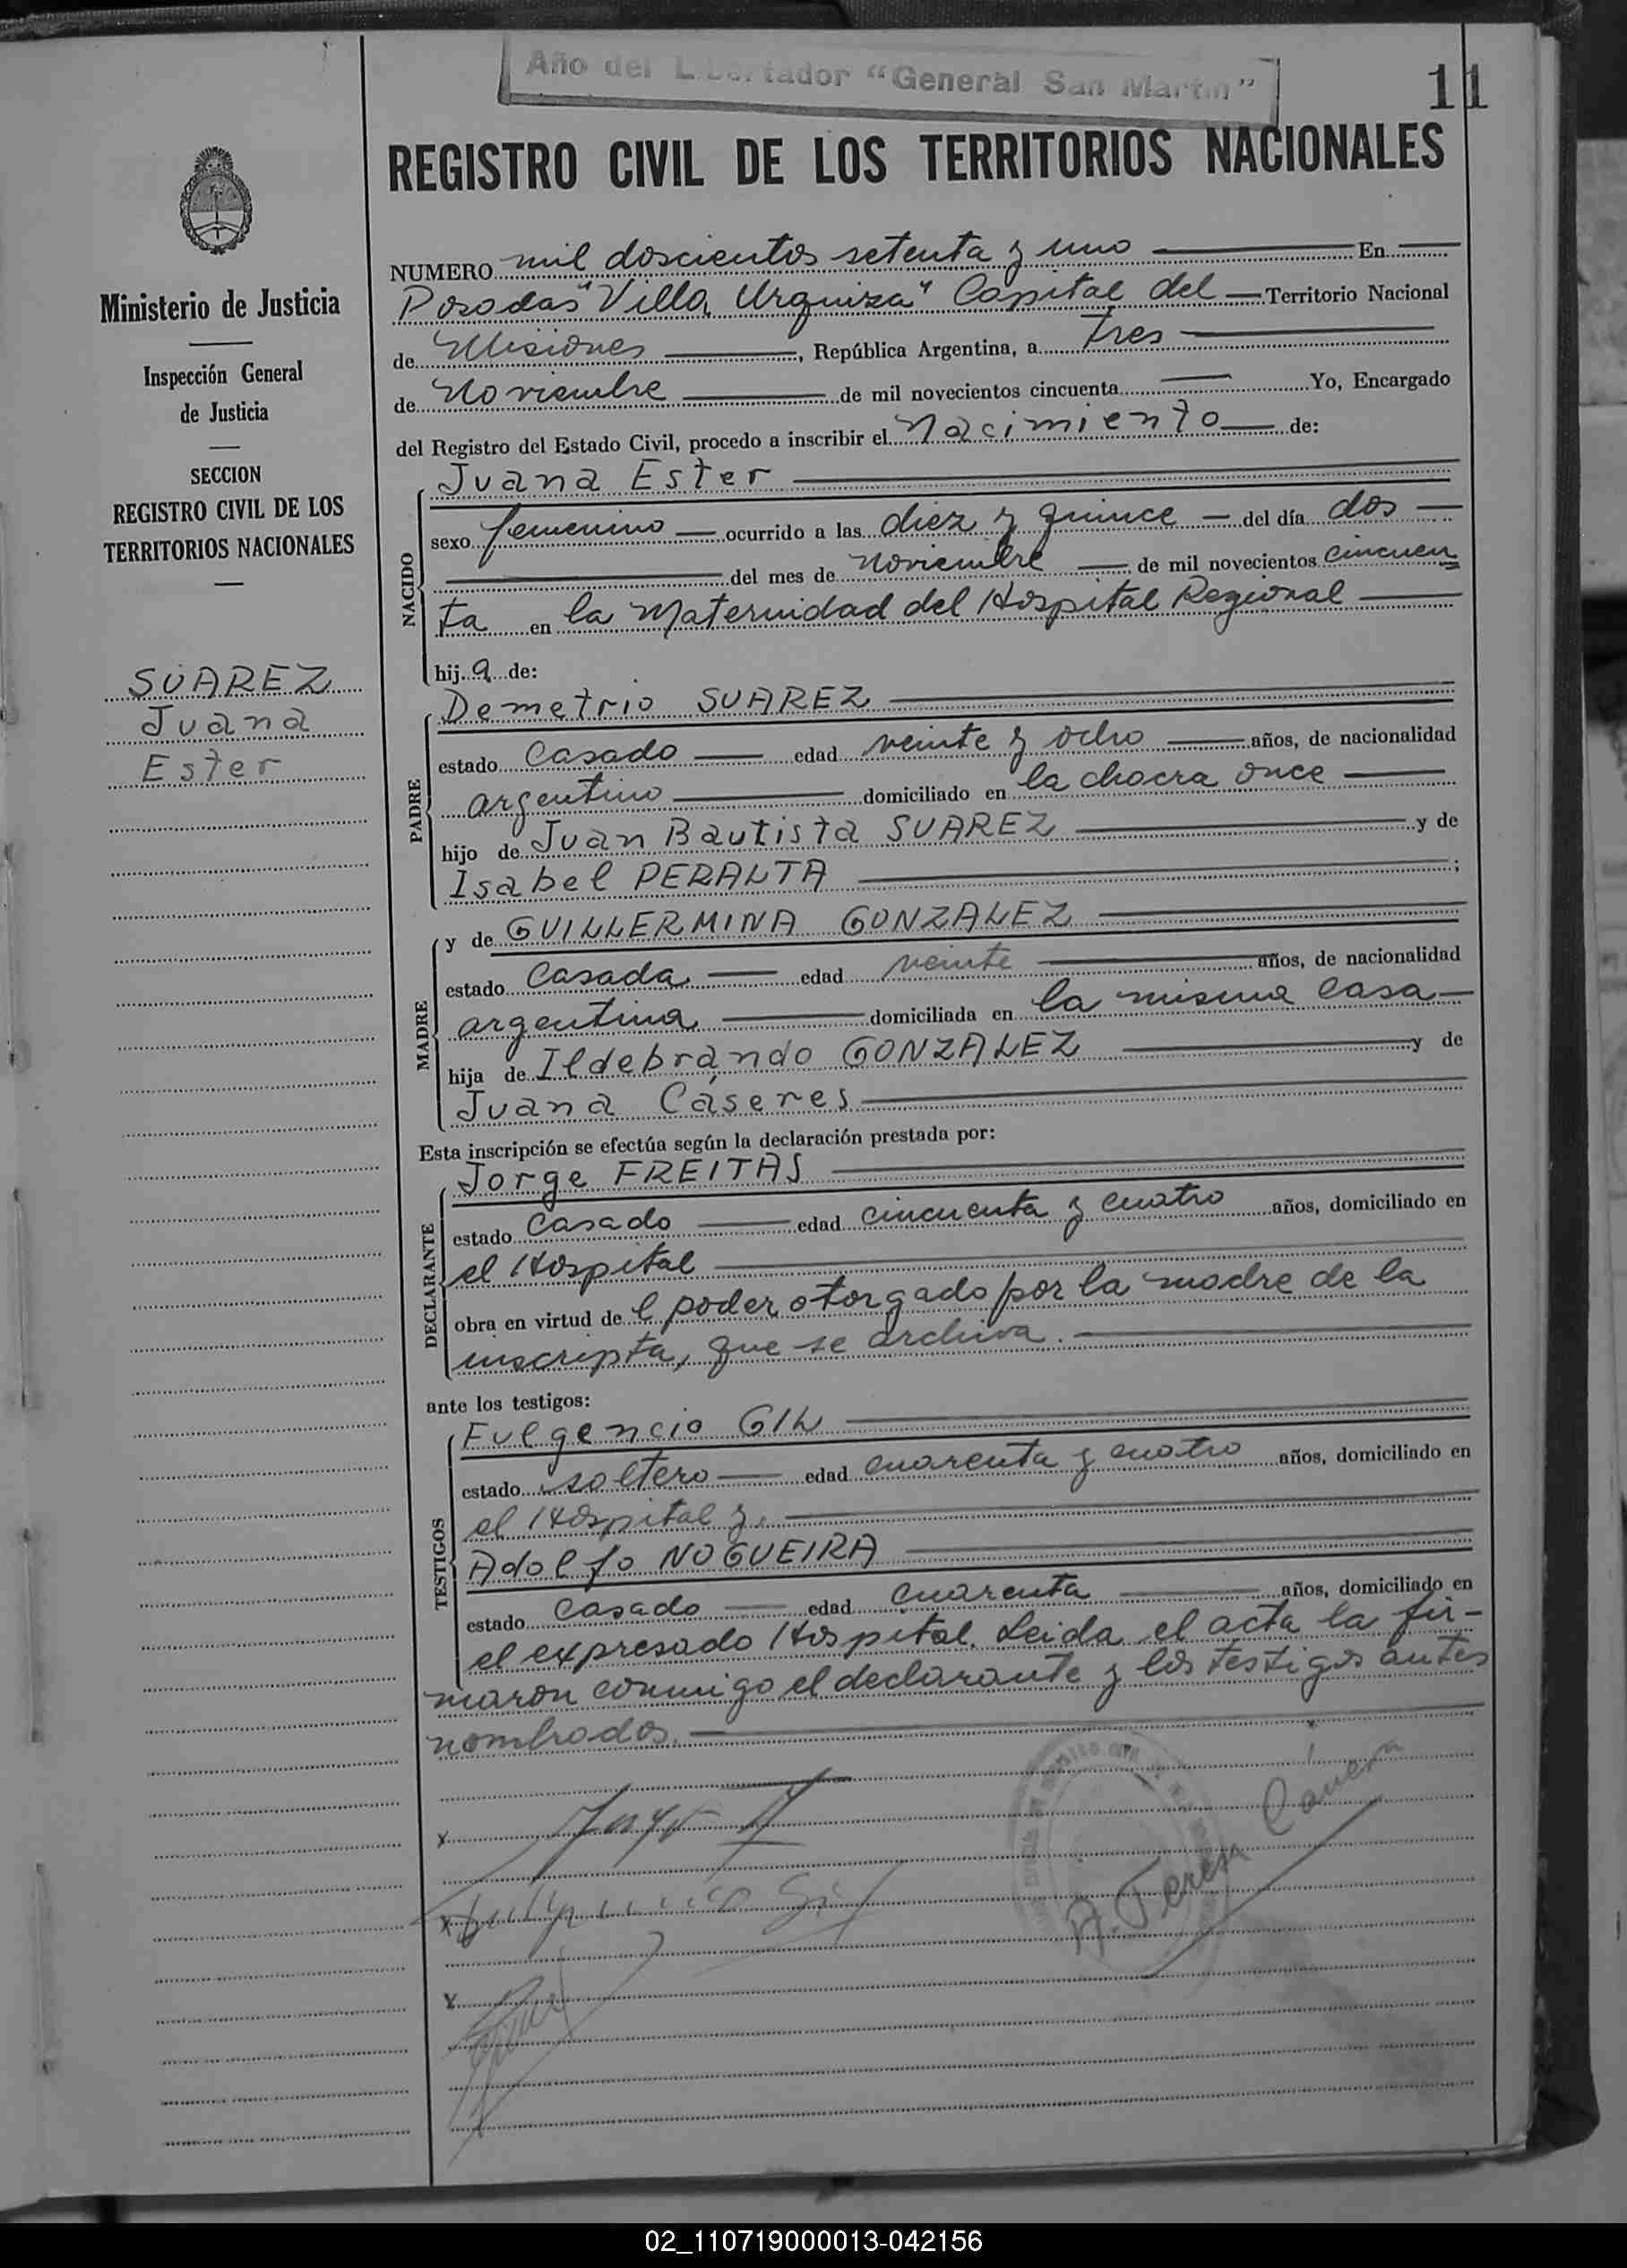 Año del Libertador "General San Martín"
11
REGISTRO CIVIL DE LOS TERRITORIOS NACIONALES
Ministerio de Justicia
Inspección General
de Justicia
SECCION
REGISTRO CIVIL DE LOS
TERRITORIOS NACIONALES
SUAREZ
Juana
Ester
NUMERO mil doscientos setenta y uno En
Posadas "Villa Urquiza" Capital del Territorio Nacional
de Misiones, República Argentina, a tres
de Noviembre de mil novecientos cincuenta Yo, Encargado
del Registro del Estado Civil, procedo a inscribir el Nacimiento de:
NACIDO
Juana Ester
sexo femenino ocurrido a las diez y quince del día dos
del mes de noviembre de mil novecientos cincuen
ta en la Maternidad del Hospital Regional
hija de:
PADRE
Demetrio SUAREZ
estado Casado edad veinte y ocho años, de nacionalidad
argentino domiciliado en la chacra once
hijo de Juan Bautista SUAREZ y de
Isabel PERALTA ;
MADRE
y de GUILLERMINA GONZALEZ
estado Casada edad veinte años, de nacionalidad
argentina domiciliada en la misma casa
hija de Ildebrando GONZALEZ y de
Juana Cáseres
Esta inscripción se efectúa según la declaración prestada por:
DECLARANTE
Jorge FREITAS
estado Casado edad cincuenta y cuatro años, domiciliado en
el Hospital
obra en virtud de l poder otorgado por la madre de la
inscripta, que se archiva.
ante los testigos:
TESTIGOS
Fulgencio GIL
estado soltero edad cuarenta y cuatro años, domiciliado en
el Hospital y.
Adolfo NOGUEIRA
estado Casado edad cuarenta años, domiciliado en
el expresado Hospital. Leida el acta la fir-
maron conmigo el declarante y los testigos antes
nombrados.
x
x Fulgencio Gil
x
02_110719000013-042156